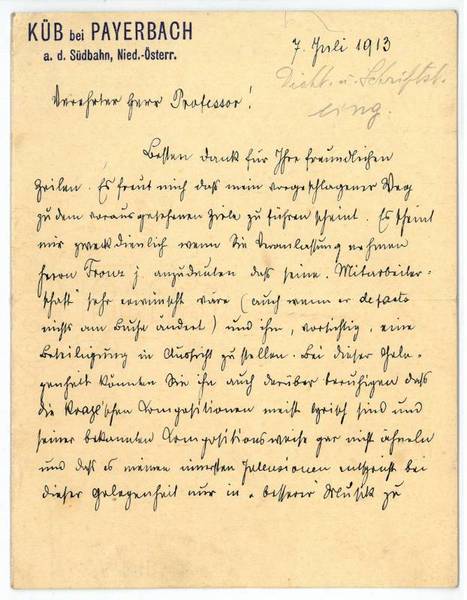 KÜB bei PAYERBACH
a. d. Südbahn, Nied.-Österr.
7. Juli 1913
Dicht. u. Schriftst.
eing.
Verehrter Herr Professor!
Besten Dank für Ihre freundlichen
Zeilen. Es freut mich daß mein vorgeschlagener Weg
zu dem vorausgesehenen Ziele zu führen scheint. Es scheint
mir zweckdienlich wenn Sie Veranlassung nehmen
Herrn j. anzudeuten daß seine „Mitarbeiter-
schaft" sehr erwünscht wäre (auch wenn er de facto
nichts am Buche ändert) und ihm, vorsichtig, eine
Beteiligung in Aussicht zu stellen. Bei dieser Gele-
genheit könnten Sie ihn auch darüber beruhigen daß
die Compositionen meist lyrisch sind und
seiner bekannten Compositionsweise gar nicht ähneln
und daß es meinen innersten Intensionen entspricht bei
dieser Gelegenheit nur in „besserer" Musik zu